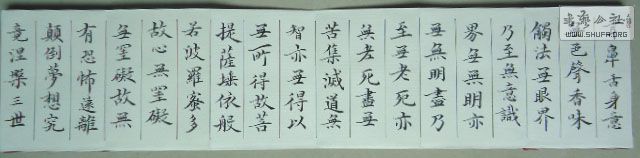 书艺公社
WWW.SHUFA.ORG
鼻舌身意
色聲香味
觸法無眼界
乃至無意識
界無無明亦
無無明盡乃
至無老死亦
無老死盡無
苦集滅道無
智亦無得以
無所得故菩
提薩埵依般
若波羅蜜多
故心無罣礙
無罣礙故無
有恐怖遠離
顛倒夢想究
竟涅槃三世